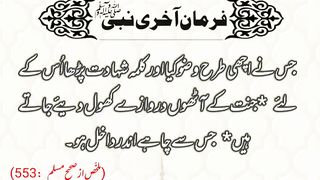 فرمان آخری نبی ﷺ
جس نے اچھی طرح وضو کیا اور کلمہ شہادت پڑھا اُس کے
لئے *جنت کے آٹھوں دروازے کھول دیے جاتے
ہیں* جس سے چاہے اندر داخل ہو۔
(ملخص از صحیح مسلم :553)